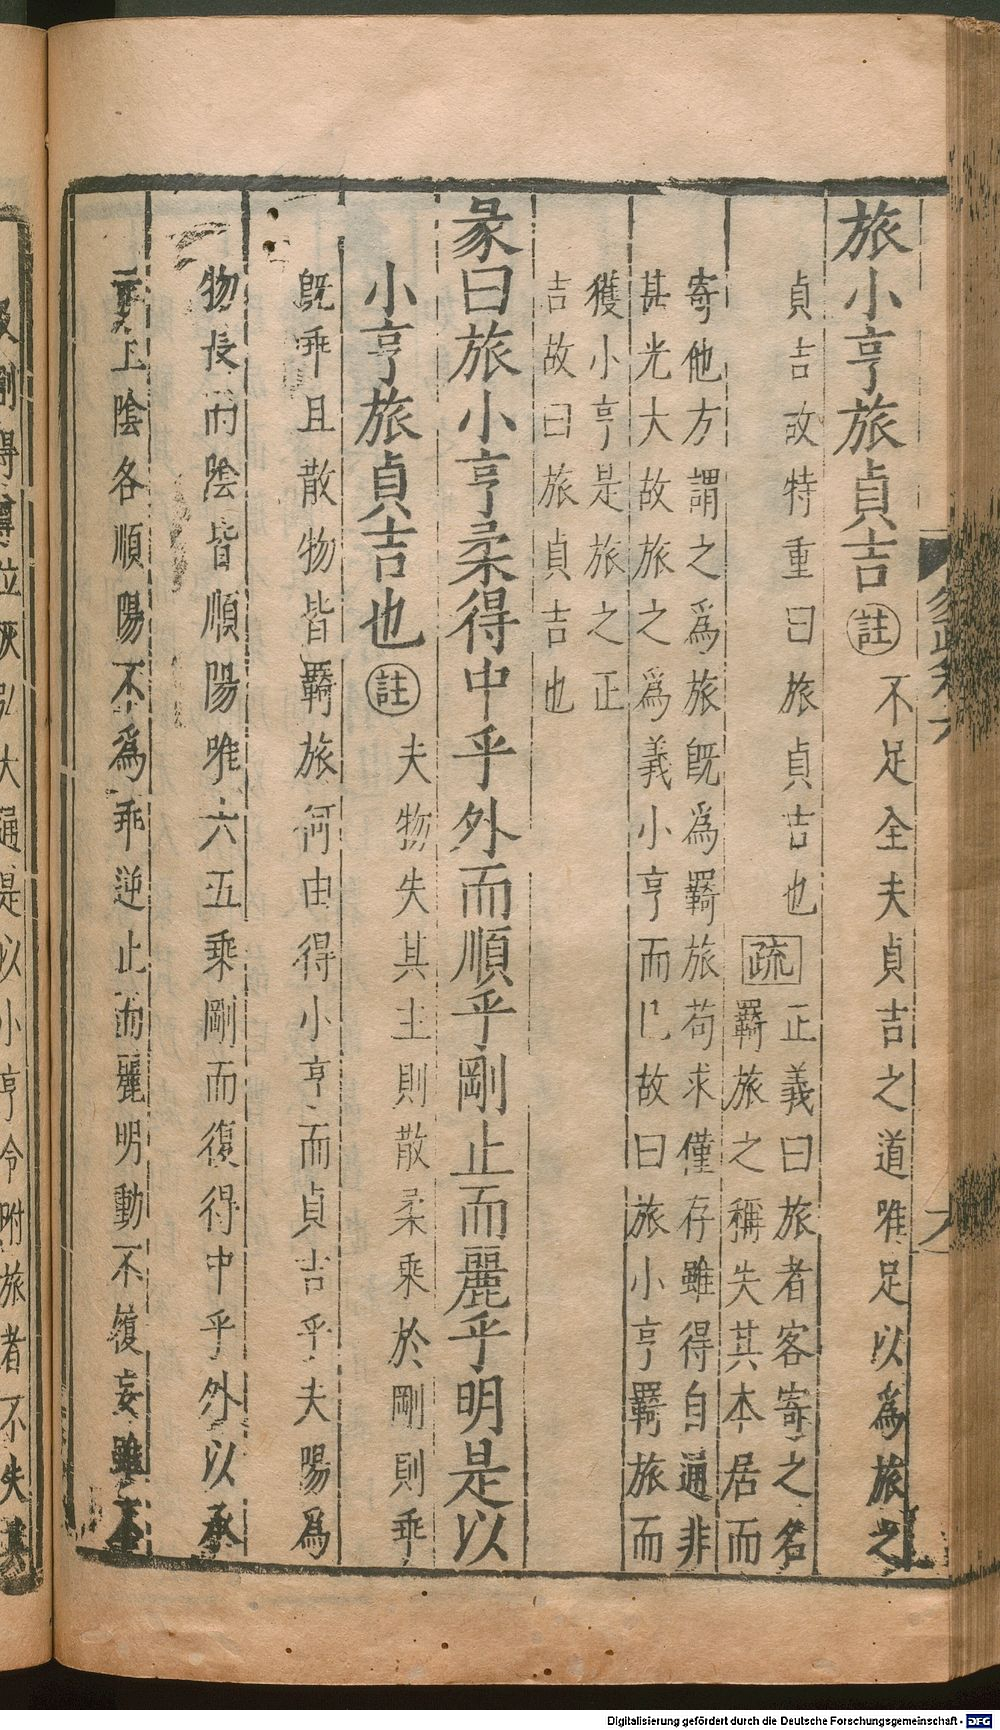 旅小亨旅貞吉註不足全夫貞吉之道唯足以爲旅之
貞吉故特重曰旅貞吉也疏正義曰旅者客寄之名
羇旅之稱失其本居而
寄他方謂之爲旅旣爲羇旅荷求僅存雖得自通非
甚光大故旅之爲義小亨而已故曰旅小亨羇旅而
獲小亨是旅之正
吉故曰旅貞吉也
彖曰旅小亨柔得中乎外而順乎剛止而麗乎明是以
小亨旅貞吉也註夫物失其主則散柔乘於剛則乖
旣乖且散物皆羇旅何由得小亨而貞吉乎夫陽爲
物長而陰皆順陽唯六五乘剛而復得中乎外以承
于上陰各順陽不爲乖逆止而麗明動不履妄雖不
得尊位恢弘大通是以小亨令附旅者不失其
Digitalisierung gefördert durch die Deutsche Forschungsgemeinschaft - DFG